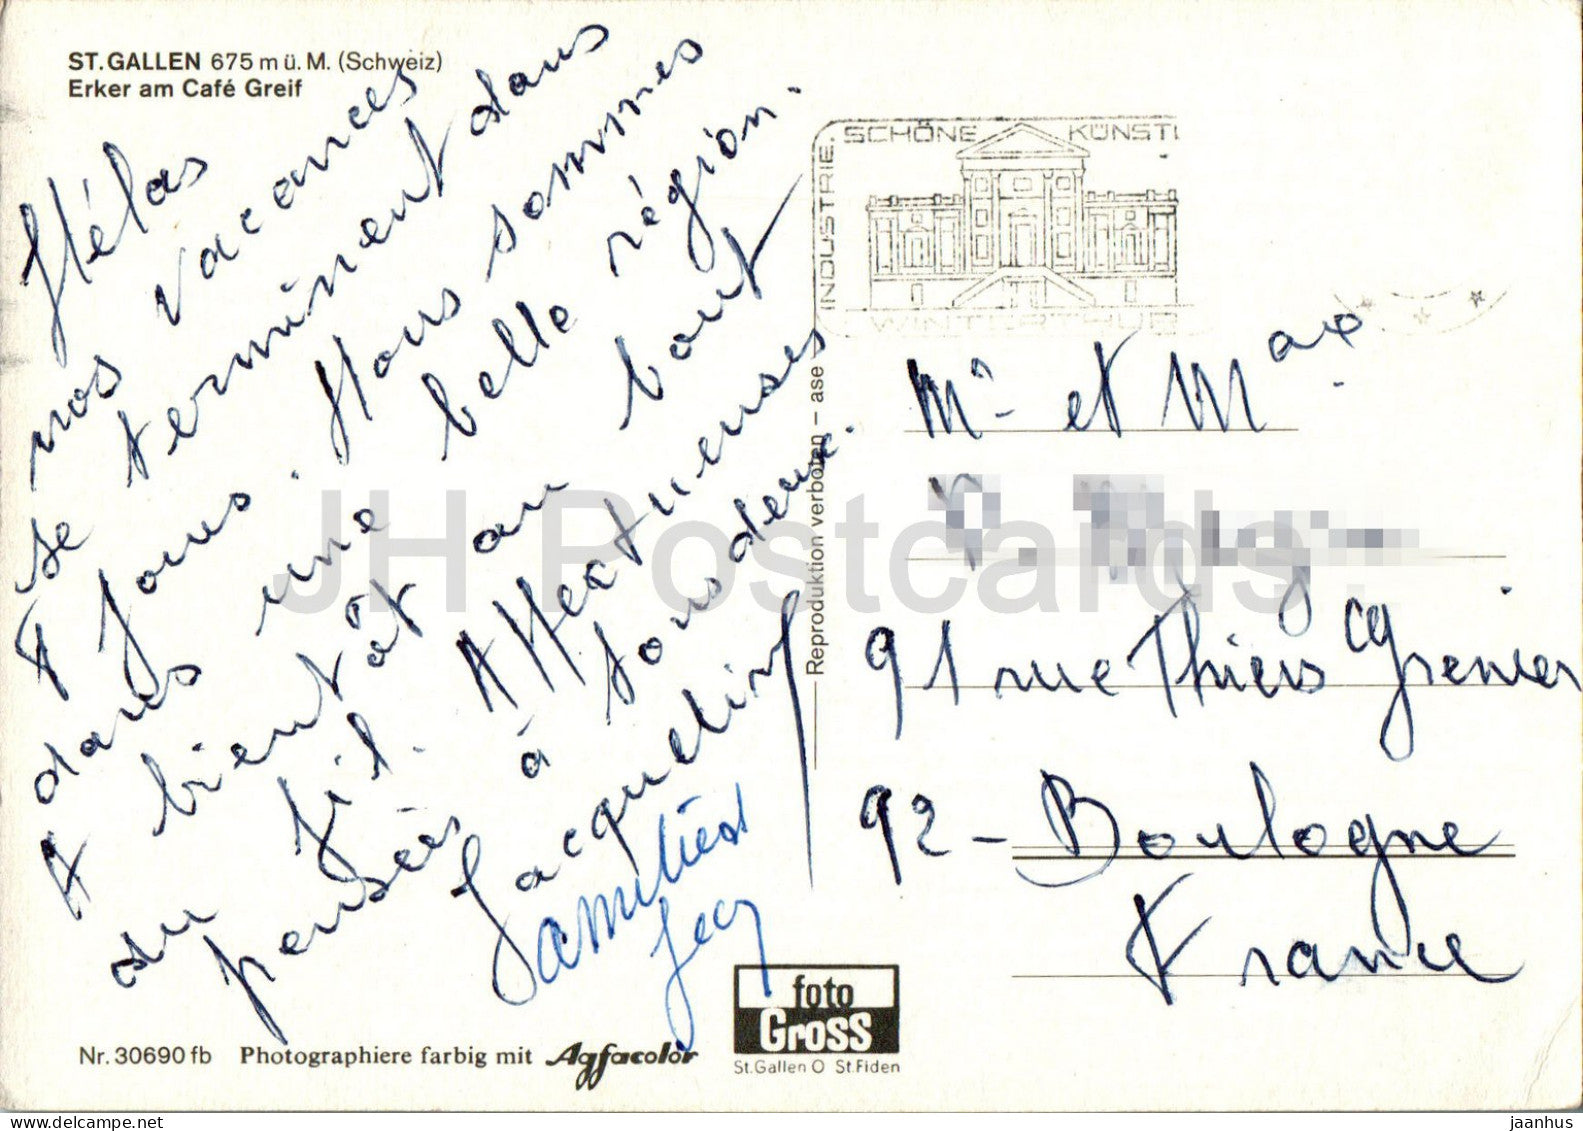 ST. GALLEN 675 m ü. M. (Schweiz)
Erker am Café Greif
Hélas
nos vacances
se terminent dans
8 jours. Nous sommes
dans une belle région.
A bientôt au bout
du fil. Affectueuses
pensées à tous deux.
Jacqueline
amitiés
INDUSTRIE, SCHÖNE KÜNST
WINTERTHUR
Reproduktion verboten – ase
Mr et M
91 rue Thiers
92 – Boulogne
France
Nr. 30690 fb Photographiere farbig mit Agfacolor
foto
Gross
St. Gallen O St. Fiden
JH Postcards
jaanhus